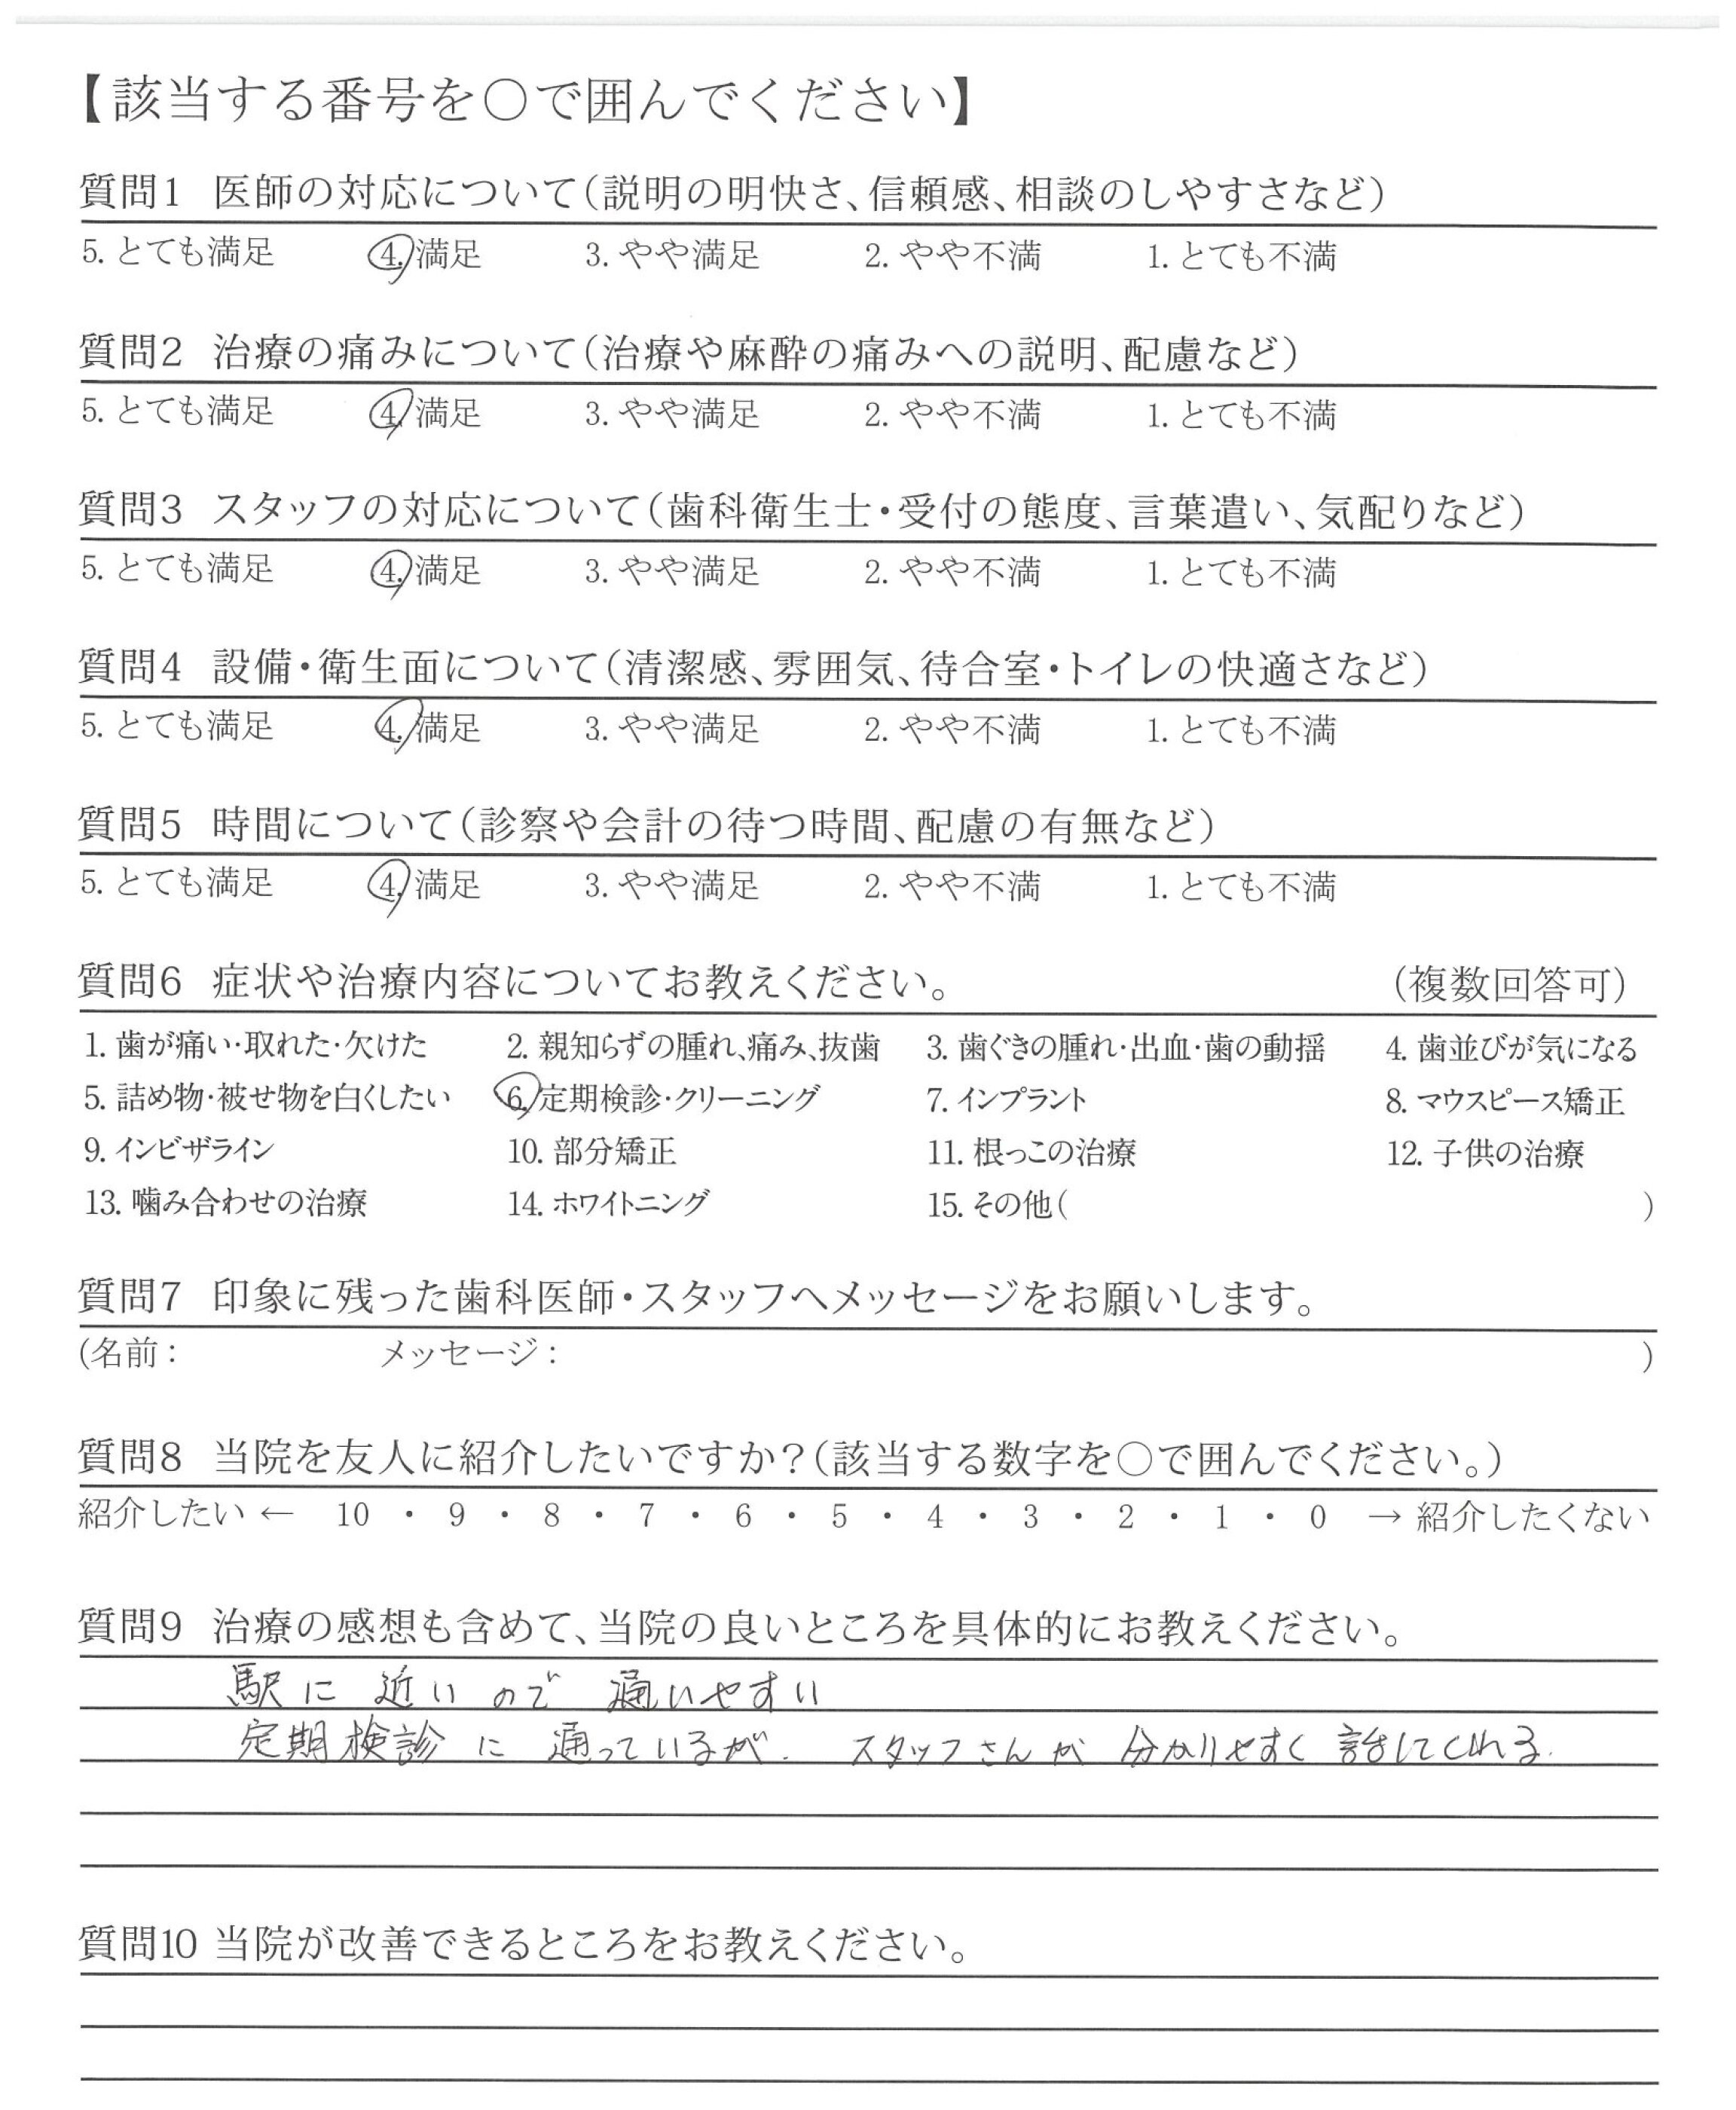 【該当する番号を○で囲んでください】
質問1 医師の対応について(説明の明快さ、信頼感、相談のしやすさなど)
5. とても満足 4. 満足 3. やや満足 2. やや不満 1. とても不満
質問2 治療の痛みについて(治療や麻酔の痛みへの説明、配慮など)
5. とても満足 4. 満足 3. やや満足 2. やや不満 1. とても不満
質問3 スタッフの対応について(歯科衛生士・受付の態度、言葉遣い、気配りなど)
5. とても満足 4. 満足 3. やや満足 2. やや不満 1. とても不満
質問4 設備・衛生面について(清潔感、雰囲気、待合室・トイレの快適さなど)
5. とても満足 4. 満足 3. やや満足 2. やや不満 1. とても不満
質問5 時間について(診察や会計の待つ時間、配慮の有無など)
5. とても満足 4. 満足 3. やや満足 2. やや不満 1. とても不満
質問6 症状や治療内容についてお教えください。 (複数回答可)
1. 歯が痛い・取れた・欠けた 2. 親知らずの腫れ、痛み、抜歯 3. 歯ぐきの腫れ・出血・歯の動揺 4. 歯並びが気になる
5. 詰め物・被せ物を白くしたい 6. 定期検診・クリーニング 7. インプラント 8. マウスピース矯正
9. インビザライン 10. 部分矯正 11. 根っこの治療 12. 子供の治療
13. 噛み合わせの治療 14. ホワイトニング 15. その他( )
質問7 印象に残った歯科医師・スタッフへメッセージをお願いします。
(名前: メッセージ: )
質問8 当院を友人に紹介したいですか?(該当する数字を○で囲んでください。)
紹介したい ← 10 ・ 9 ・ 8 ・ 7 ・ 6 ・ 5 ・ 4 ・ 3 ・ 2 ・ 1 ・ 0 → 紹介したくない
質問9 治療の感想も含めて、当院の良いところを具体的にお教えください。
駅に 近い ので 通いやすい
定期検診 に 通っているが、 スタッフさんが 分かりやすく 話してくれる.
質問10 当院が改善できるところをお教えください。